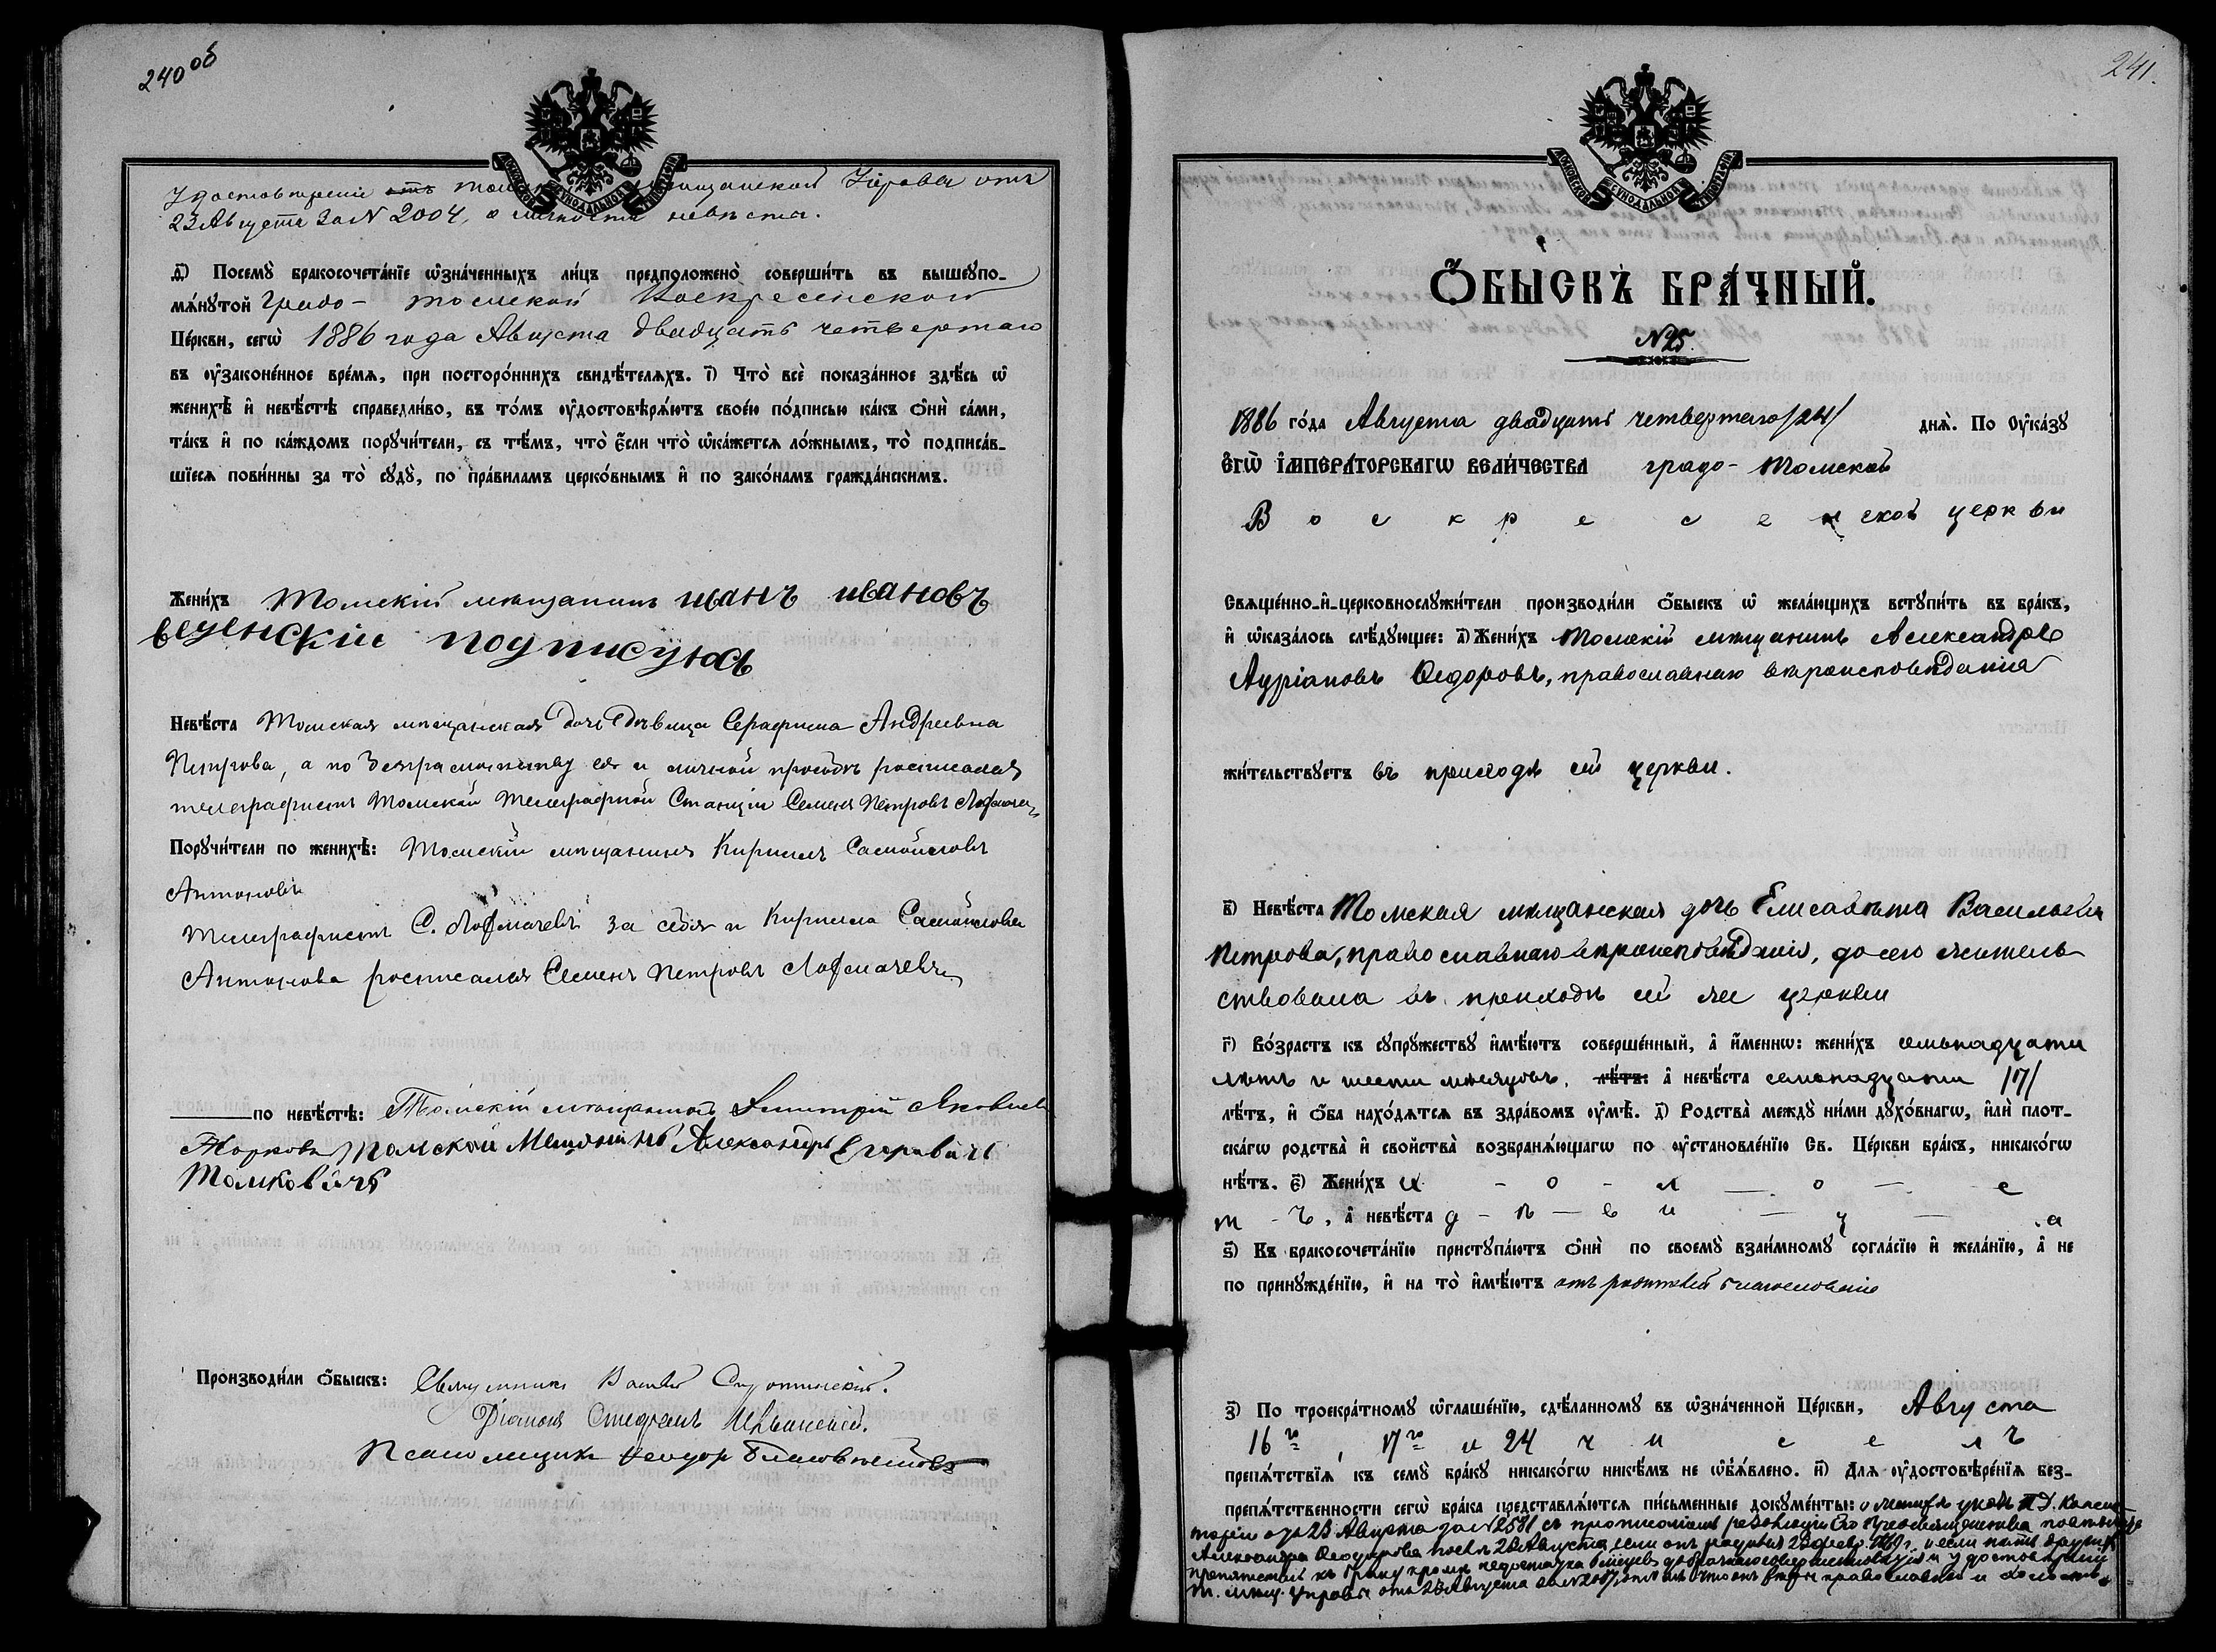 240 об
Удостовѣреніе отъ Том мѣщанской Управы отъ
23 Августа за N 2004, о невѣсты.
МОСКОВСКОЙ СѴНОДАЛЬНОЙ ТИПОГРАФІИ
ѳ҃) Посемꙋ̀ бракосочета́нїе ѡ҆зна́ченныхъ ли́цъ предположено̀ соверши́ть въ вышеꙋпо-
мѧ́нꙋтой Градо- Томской Воскресенской
Це́ркви, сегѡ̀ 1886 года Августа двадцать четвертаго
въ ᲂу҆законе́нное вре́мѧ, при посторо́ннихъ свидѣ́телѧхъ. і҃) Что̀ всѐ пока́занное здѣ́сь ѡ҆
женихѣ̀ и҆ невѣ́стѣ справедли́во, въ то́мъ ᲂу҆достовѣрѧ́ютъ свое́ю по́дписью ка́къ ѻ҆нѝ са́ми,
та́къ и҆ по ка́ждомъ порꙋчи́тели, съ тѣ́мъ, что̀ є҆́сли что̀ ѡ҆ка́жетсѧ ло́жнымъ, то̀ подписа́в-
шїесѧ пови́нны за то̀ сꙋдꙋ̀, по пра́виламъ церко́внымъ и҆ по зако́намъ гражда́нскимъ.
Жени́хъ Томскій мѣщанинъ иванъ ивановъ
подписуюсь
Невѣ́ста Томская мѣщанская дочь дѣвица Серафима Андреевна
Петрова, а по безграмотству ея и личной просьбѣ росписался
телеграфистъ Томской Телеграфной Станціи Семенъ Петровъ
Порꙋчи́тели по женихѣ̀: Томскій мѣщанинъ Кириллъ Самойловъ
Антоновъ
Телеграфистъ С. за себя и Кирилла Самойлова
Антонова росписался Семенъ Петровъ
по невѣ́стѣ: Томскій мѣщанинъ Дмитрій Яковлевъ
Томской Мещанинъ Александръ Егоровичъ
Томковичъ
Производи́ли ѻ҆́быскъ: Священникъ Василій Сиротинскій.
Діаконъ Стефанъ
Псаломщикъ
241.
МОСКОВСКОЙ СѴНОДАЛЬНОЙ ТИПОГРАФІИ
Ѻ҆́БЫСКЪ БРА́ЧНЫЙ.
N 25.
1886 го́да Августа двадцать четвертаго /24/ днѧ̀. По Оу҆ка́зꙋ
Є҆гѡ̀ І҆МПЕРА́ТОРСКАГѠ ВЕЛИ́ЧЕСТВА градо- Томской
Воскресенской церкви
Свѧще́нно-и҆-церковнослꙋжи́тели производи́ли ѻ҆́быскъ ѡ҆ жела́ющихъ встꙋпи́ть въ бра́къ,
и҆ ѡ҆каза́лось слѣ́дꙋющее: а҃) Жени́хъ Томскій мѣщанинъ Александръ
Ѳедоровъ, православнаго вѣроисповѣданія
жи́тельствꙋетъ въ приходѣ сей церкви.
в҃) Невѣ́ста Томская мѣщанская дочь Елисавета Васильева
Петрова, православнаго вѣроисповѣданія, до сего житель-
ствовала въ приходѣ сей же церкви
г҃) Во́зрастъ къ сꙋпрꙋ́жествꙋ и҆мѣ́ютъ соверше́нный, а҆ и҆́меннѡ: жени́хъ семьнадцати
лѣтъ и шести мѣсяцовъ, лѣ́тъ: а҆ невѣ́ста семьнадцати /17/
лѣ́тъ, и҆ ѻ҆́ба нахо́дѧтсѧ въ здра́вомъ ᲂу҆мѣ̀. д҃) Родства̀ междꙋ̀ ни́ми дꙋхо́внагѡ, и҆лѝ плот-
ска́гѡ родства̀ и҆ сво́йства̀ возбранѧ́ющагѡ по ᲂу҆становле́нїю Св. Це́ркви бра́къ, никако́гѡ
нѣ́тъ. є҃) Жени́хъ х - о - л - о - с
т - ъ, а҆ невѣ́ста д - ѣ - в и - ц а
ѕ҃) Къ бракосочета́нїю пристꙋпа́ютъ ѻ҆нѝ по своемꙋ̀ взаи́мномꙋ согла́сїю и҆ жела́нїю, а҆ не
по принꙋжде́нїю, и҆ на то̀ и҆мѣ́ютъ отъ родителей благословеніе
з҃) По троекра́тномꙋ ѡ҆глаше́нїю, сдѣ́ланномꙋ въ ѡ҆зна́ченной Це́ркви, Августа
16го, 17го и 24 чиселъ
препѧ́тствїѧ къ семꙋ̀ бра́кꙋ никако́гѡ никѣ́мъ не ѡ҆б̾ѧ́влено. и҃) Длѧ ᲂу҆достовѣре́нїѧ без-
препѧ́тственности сегѡ̀ бра́ка представлѧ́ютсѧ пи́сьменные докꙋме́нты: о женихѣ указъ Т. Д. Консис-
торіи отъ 23 Августа за N 2581 съ прописаніемъ резолюціи Его Преосвященства повѣнчать
Александра Ѳеодорова послѣ 23 Августа, если онъ родился 23 февр. 1869 г. и если нѣтъ другихъ
препятствій къ браку кромѣ недостатка
Т. мѣщ. Управы отъ 23 Августа за N православный и холостъ.